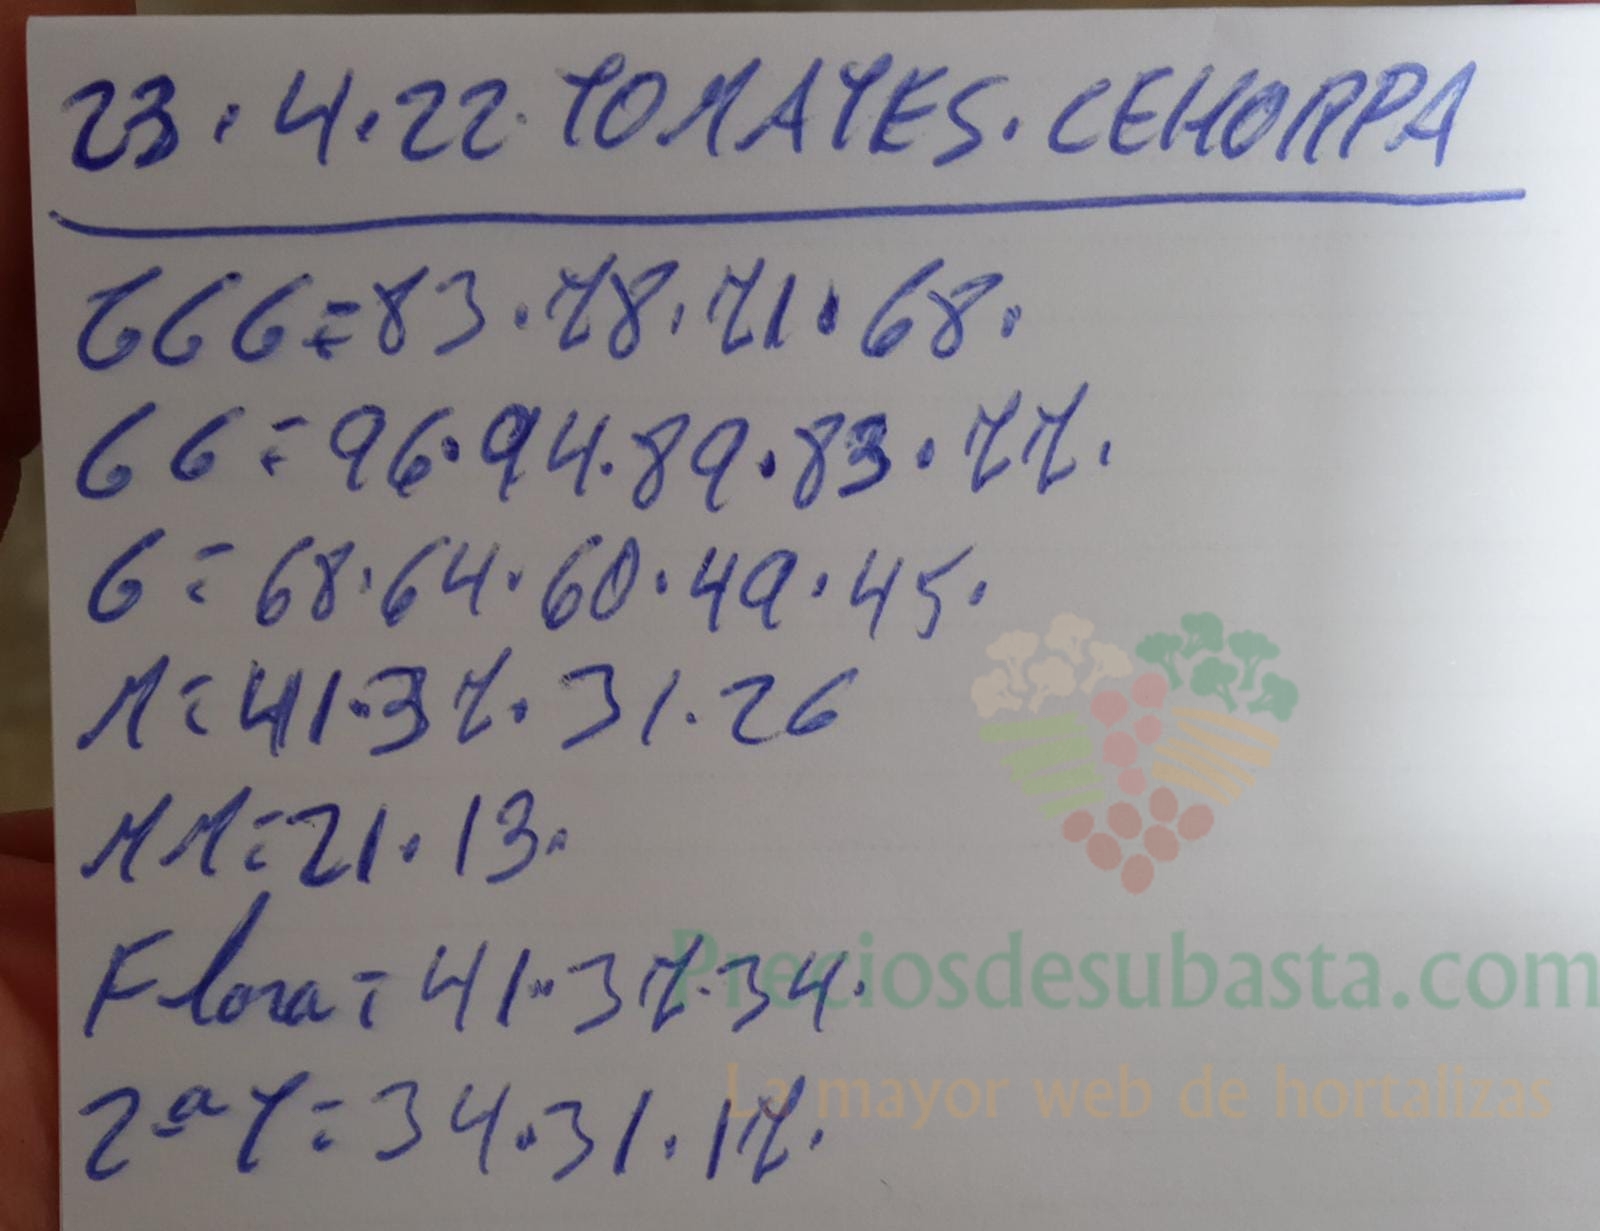 23.4.22. TOMATES. CEHORPA
GGG=83.78.71.68.
GG=96.94.89.83.77.
G=68.64.60.49.45.
M=41.37.31.26
MM=21.13.
Flora=41.37.34.
2ªT=34.31.17.
Preciosdesubasta.com
La mayor web de hortalizas